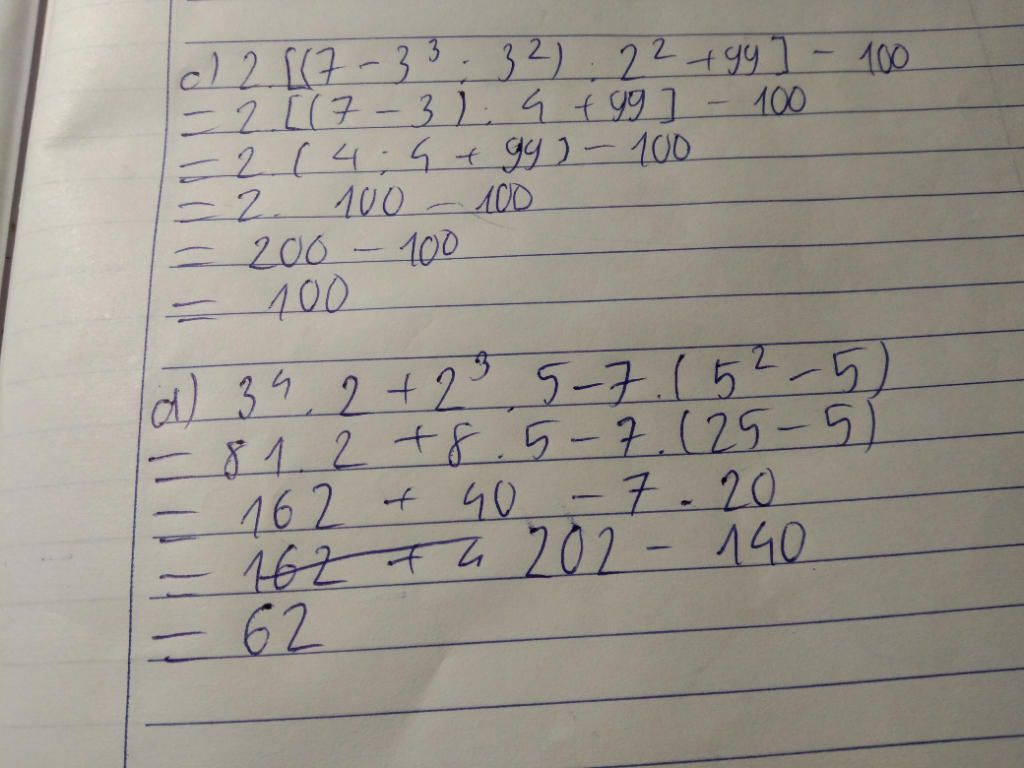 c) 2.[(7 - 3³ : 3²) : 2² + 99] - 100
= 2.[(7 - 3) : 4 + 99] - 100
= 2.(4 : 4 + 99) - 100
= 2. 100 - 100
= 200 - 100
= 100
d) 3⁴ . 2 + 2³ . 5 - 7.(5² - 5)
= 81 . 2 + 8 . 5 - 7.(25 - 5)
= 162 + 40 - 7 . 20
= 162 + 4 202 - 140
= 62